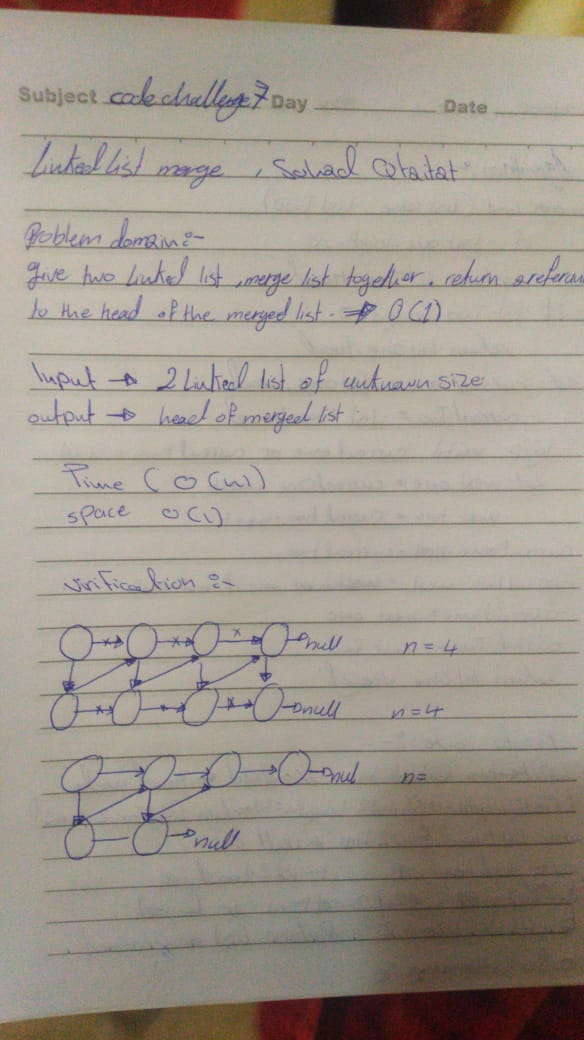 Subject code challenge 7 Day Date
Linked list merge , Suhad Qtaitat
Problem domain:-
give two linked list , merge list together. return a referenc
to the head of the merged list. ⇒ O(1)
Input → 2 Linked list of unknown size
output → head of merged list
Time ( O(n))
space O(1)
virification :-
x x x null n=4
x x x null n=4
null n=
null